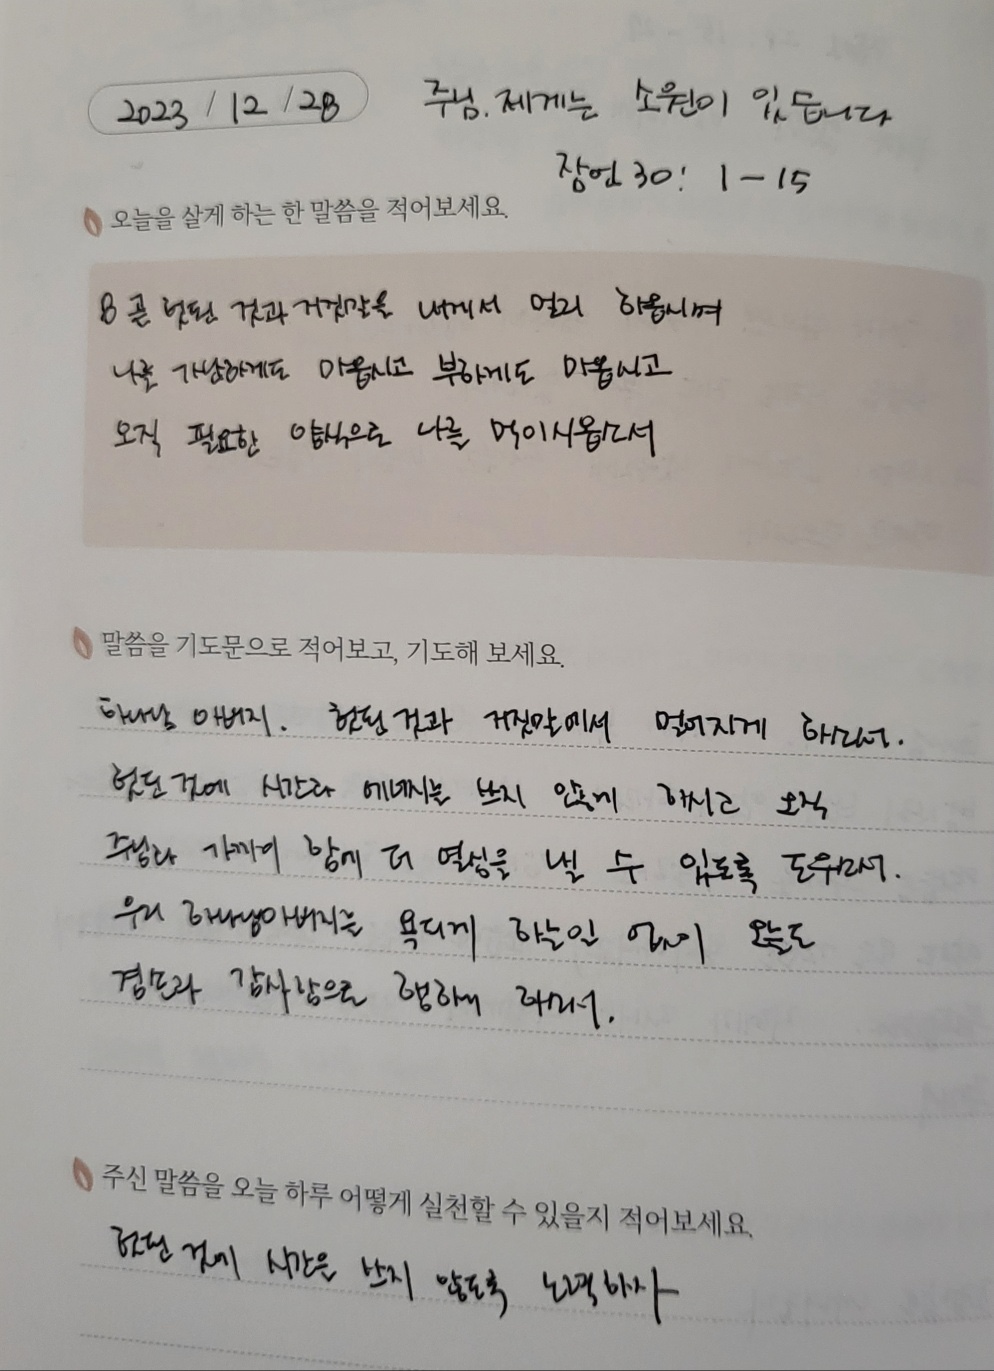 2023/12/28 주님. 제게는 소원이 있습니다
잠언 30: 1-15
오늘을 살게 하는 한 말씀을 적어보세요.
8 곧 헛된 것과 거짓말을 내게서 멀리 하옵시며
나를 가난하게도 마옵시고 부하게도 마옵시고
오직 필요한 양식으로 나를 먹이시옵소서
말씀을 기도문으로 적어보고, 기도해 보세요.
하나님 아버지. 헛된 것과 거짓말에서 멀어지게 하소서.
헛된 것에 시간과 에너지를 쓰지 않게 하시고 오직
주님과 가까이 함에 더 열심을 낼 수 있도록 도우소서.
우리 하나님아버지를 욕되게 하는일 없이 오늘도
겸손과 감사함으로 행하게 하소서.
주신 말씀을 오늘 하루 어떻게 실천할 수 있을지 적어보세요.
헛된 것에 시간을 쓰지 않도록 노력하자